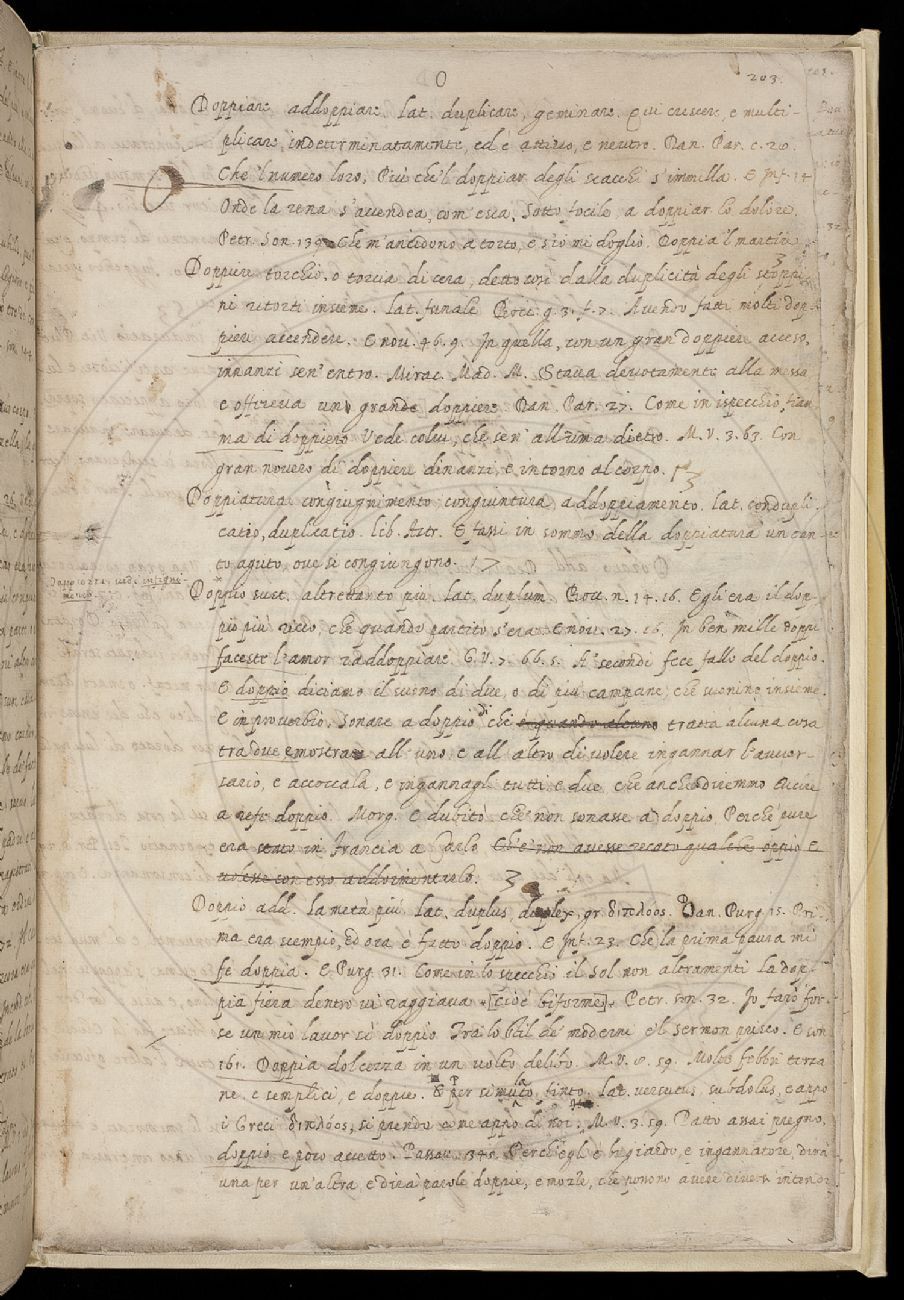 203.
Doppiare addoppiare lat. duplicare, geminare. Qui crescere, e multi-
plicare, indeterminatamente, ed è attivo, e neutro. Dan. Par. c. 28.
Che 'l numero loro, Più che 'l doppiar degli scacchi s'immilla. E Inf. 14
Onde la rena s'accendea, com'esca, Sotto focile, a doppiar lo dolore.
Petr. Son. 139. Che m'ancidono a torto, e s'io mi doglio, Doppia 'l martir
Doppiere torchio, o torcia di cera, detto così dalla duplicità degli stoppi-
ni ritorti insieme. lat. funale Bocc. g. 3. f. 7. Avendo fatti molti dop-
pieri accendere. E nov. 46. 9. In quella, con un gran doppiere acceso,
innanzi sen' entrò. Mirac. Mad. M. Stava devotamente alla messa
e offereva uno grande doppiere Dan. Par. 27. Come in ispecchio fiam-
ma di doppiero Vede colui, che sen' alluma dietro. M. V. 3. 63. Con
gran novero di doppieri dinanzi, e intorno al corpo.
Doppiatura congiugnimento congiuntura, addoppiamento. lat. condupli-
catio, duplicatio. lib. Astr. E fassi in sommo della doppiatura un can-
to aguto ove si congiungono.
Doppiezza, vedi infigni-
mento.
Doppio sust. altrettanto più. lat. duplum. Bocc. n. 14. 16. Egli era il dop-
pio più ricco, che quando partito s'era E nov. 27. 16. In ben mille doppi
faceste l'amor raddoppiare. G. V. 7. 66. 5. A' secondi fece fallo del doppio.
E doppio diciamo il suono di due, o di più campane, che suonino insieme.
E in proverbio, Sonare a doppio di chi è quando alcuno tratta alcuna cosa
tra due e mostra all' uno e all' altro di volere ingannar l'avver-
sario, e accoccala, e ingannagli tutti e due, che anche diremmo
a refe doppio. Morg. E dubitò che non sonasse a doppio, Perchè pure
era stato in Francia a Carlo Ch'e' non avesse recato qualche oppio E
volesse con esso addormentarlo.
Doppio add. la metà più lat. duplus, duplex, gr. διπλόος. Dan. Purg. 15. Pri-
ma era scempio, ed ora è fatto doppio. E Inf. 23. Che la prima paura mi
fe doppia. E Purg. 31. Come in lo specchio il Sol non altramenti La dop-
pia fiera dentro vi raggiava [cioè biforme]. Petr. son. 32. Io farò for-
se un mio lavor sì doppio Tra lo stil de' moderni e 'l sermon prisco. E son
161. Doppia dolcezza in un volto delibo. M. V. 8. 59. Molte febbri terza
ne e semplici, e doppie. E per simulato, finto. Lat. versutus, subdolus, e appo
i Greci διπλόος, si prende come appo di noi. M. V. 3. 59. Patto assai pregno,
doppio e poco accetto. Passav. 345. Perch'egli è bugiardo, e ingannatore, dirà
una per un'altra, e dirà parole doppie, e mozze, che possono avere diversi intendi-